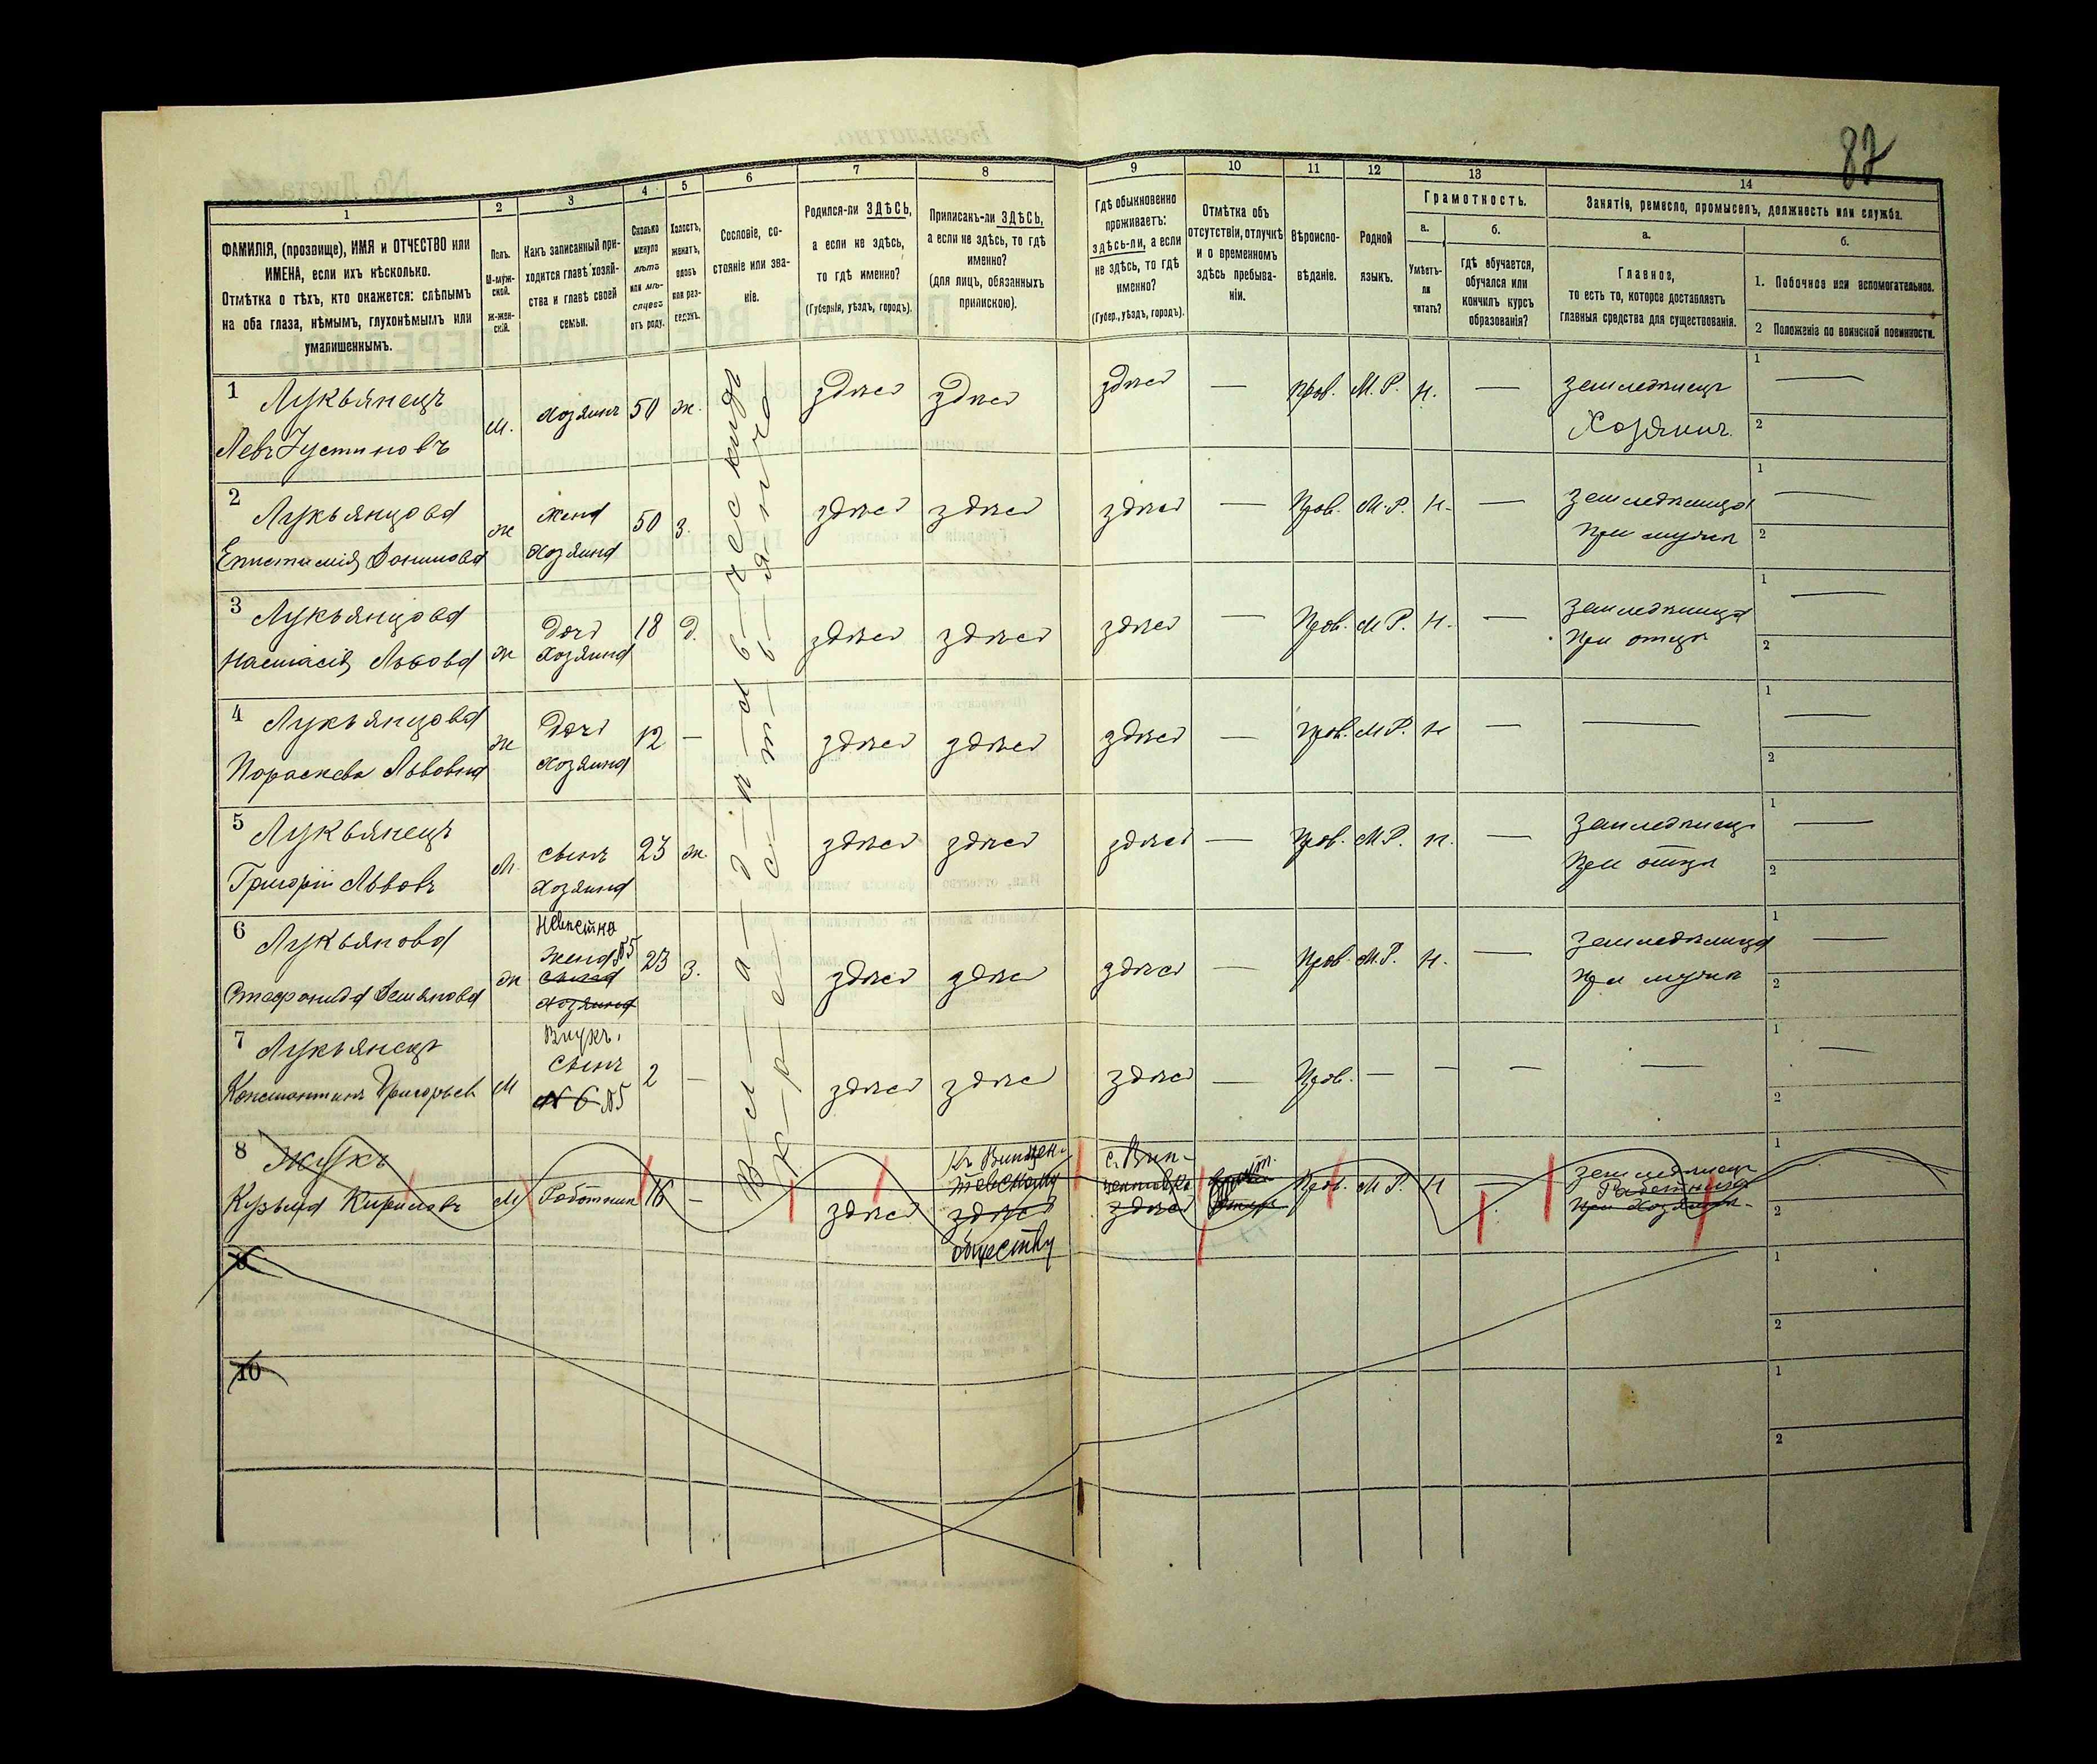 87
1
2
3
4
5
6
7
8
9
10
11
12
13
14
ФАМИЛІЯ, (прозвище), ИМЯ и ОТЧЕСТВО или
ИМЕНА, если ихъ нѣсколько.
Отмѣтка о тѣхъ, кто окажется: слѣпымъ
на оба глаза, нѣмымъ, глухонѣмымъ или
умалишеннымъ.
Полъ.
М-муж-
ской.
Ж-жен-
скій.
Какъ записанный при-
ходится главѣ хозяй-
ства и главѣ своей
семьи.
Сколько
минуло
лѣтъ
или мѣ-
сяцевъ
отъ роду.
Холостъ,
женатъ,
вдовъ
или раз-
веденъ.
Сословіе, со-
стояніе или зва-
ніе.
Родился-ли ЗДѢСЬ,
а если не здѣсь,
то гдѣ именно?
(Губернія, уѣздъ, городъ).
Приписанъ-ли ЗДѢСЬ,
а если не здѣсь, то гдѣ
именно?
(для лицъ, обязанныхъ
припискою).
Гдѣ обыкновенно
проживаетъ:
здѣсь-ли, а если
не здѣсь, то гдѣ
именно?
(Губер., уѣздъ, городъ).
Отмѣтка объ
отсутствіи, отлучкѣ
и о временномъ
здѣсь пребыва-
ніи.
Вѣроиспо-
вѣданіе.
Родной
языкъ.
Грамотность.
а.
Умѣетъ-
ли
читать?
б.
гдѣ обучается,
обучался или
кончилъ курсъ
образованія?
Занятіе, ремесло, промыселъ, должность или служба.
а.
Главное,
то есть то, которое доставляетъ
главныя средства для существованія.
б.
1. Побочное или вспомогательное.
2 Положеніе по воинской повинности.
Владѣльческихъ
Крестьянъ
1 Лукьянецъ
Левъ Устиновъ
м. хозяинъ 50 ж. здѣсь здѣсь здѣсь — Прав. М. Р. Н. — земледѣлецъ
Хозяинъ
1 —
2
2 Лукьянцова
Епистимія
ж жена
хозяина
50 з. здѣсь здѣсь здѣсь — Прав. М. Р. Н. — земледѣлица
при мужѣ
1 —
2
3 Лукьянцова
Настасія Львова
ж дочь
хозяина
18 д. здѣсь здѣсь здѣсь — Прав. М Р. Н. — земледѣлица
при отцѣ
1 —
2
4 Лукьянцова
Параскева Львовна
ж дочь
хозяина
12 — здѣсь здѣсь здѣсь — Прав. М Р. Н — —
1 —
2
5 Лукьянецъ
Григорій Львовъ
М. сынъ
хозяина
23 ж. здѣсь здѣсь здѣсь — Прав. М. Р. Н. — земледѣлецъ
при отцѣ
1 —
2
6 Лукьянова
Стефанида Демянова
ж Невѣстка
жена №5
сына
хозяина
23 з. здѣсь здѣсь здѣсь — Прав. М. Р. Н. — земледѣлица
при мужѣ
1 —
2
7 Лукьянецъ
Константинъ Григорьев
М Внукъ.
сынъ
№ 6 №5
2 — здѣсь здѣсь здѣсь — Прав. — — — —
1 —
2
8 Жукъ
Кузьма Кириловъ
М Работник 16 — здѣсь
здѣсь
обществу
с. Вин-
здѣсь
Прав. М Р. Н — земледѣлецъ
Работникъ
при хозяинѣ
1
2
9
1
2
10
1
2